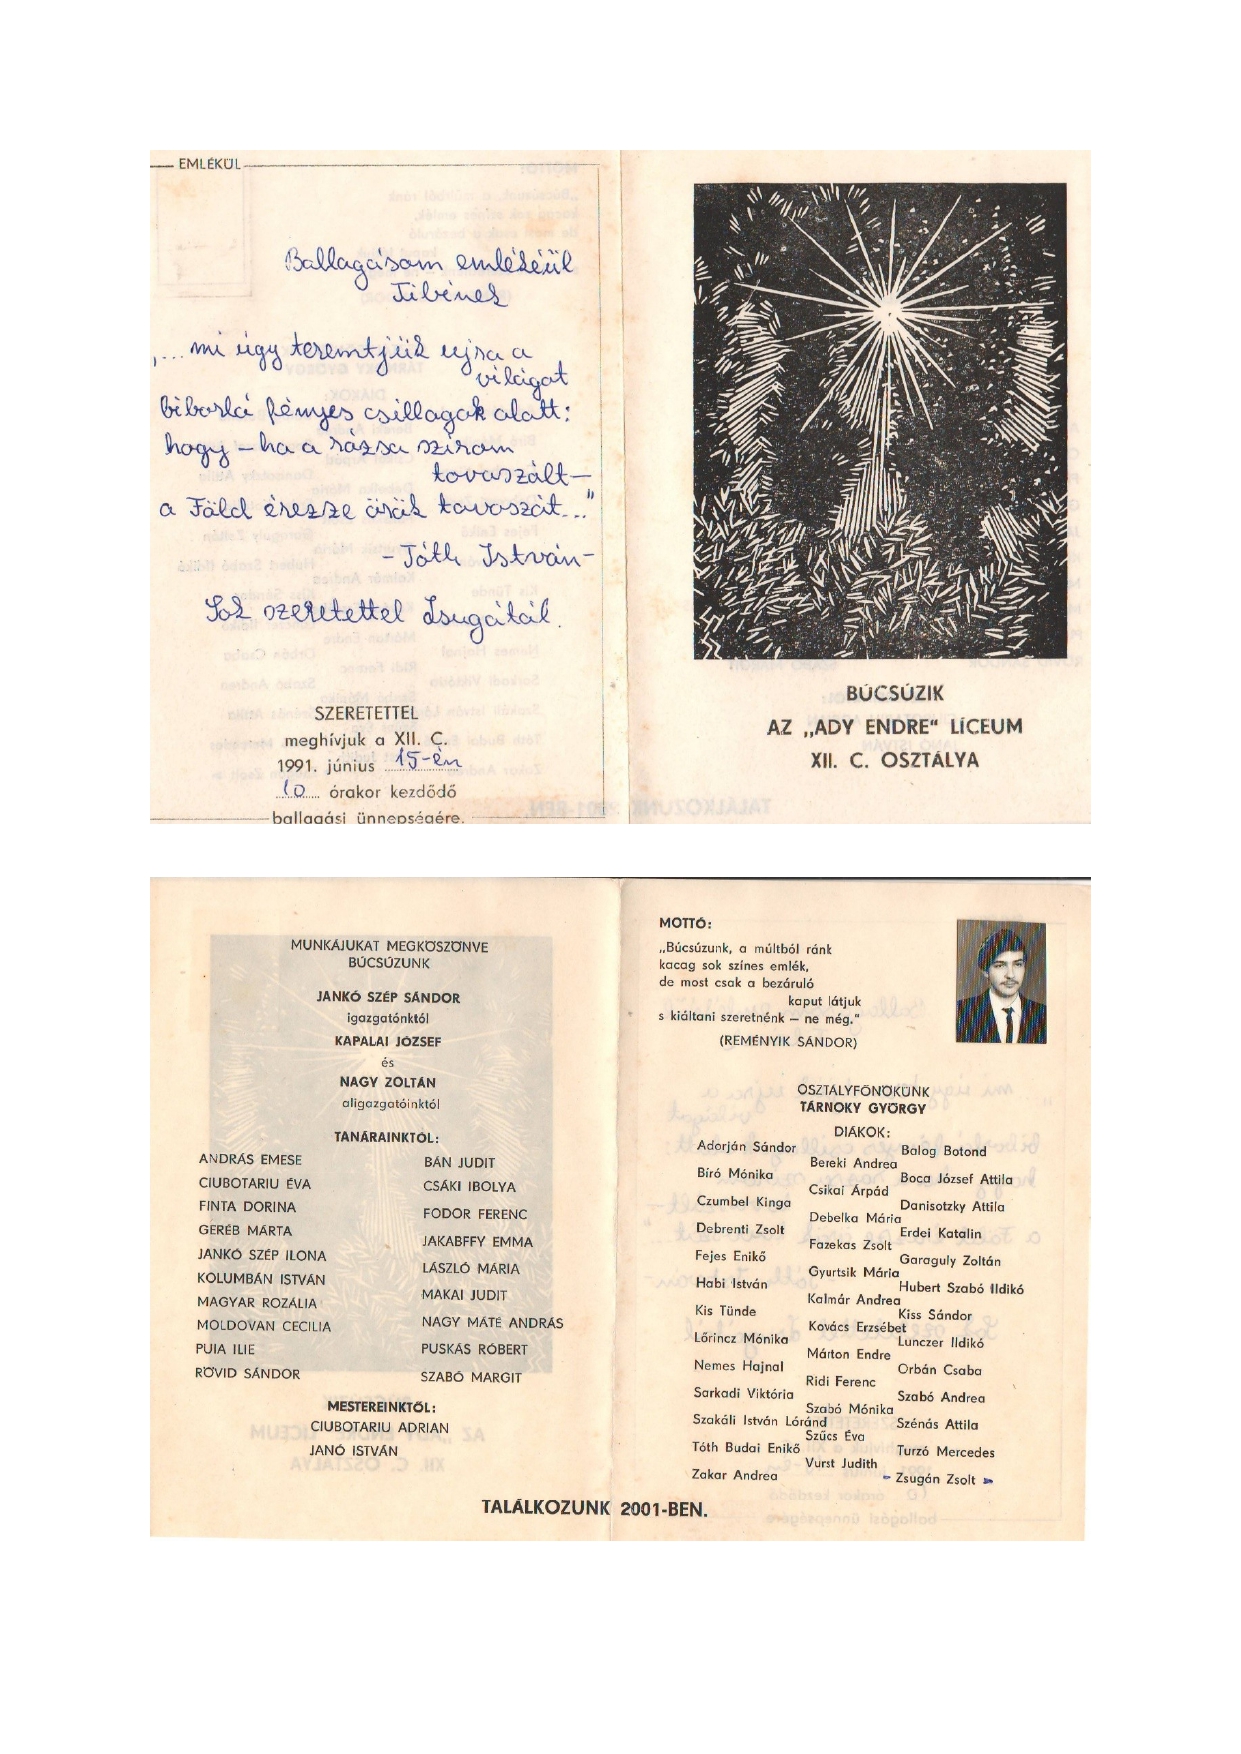 EMLÉKÜL
Ballagásom emlékéül
Tibinek
„... mi úgy teremtjük ujra a
világot
biborló fényes csillagok alatt:
hogy – ha a rózsa szirom
tovaszált –
a Föld érezze örök tavaszát..."
- Tóth István -
Sok szeretettel Zsugától.
SZERETETTEL
meghívjuk a XII. C.
1991. június 15-én
10 órakor kezdődő
ballagási ünnepségére.
BÚCSÚZIK
AZ „ADY ENDRE“ LÍCEUM
XII. C. OSZTÁLYA
MUNKÁJUKAT MEGKÖSZÖNVE
BÚCSÚZUNK
JANKÓ SZÉP SÁNDOR
igazgatónktól
KAPALAI JÓZSEF
és
NAGY ZOLTÁN
aligazgatóinktól
TANÁRAINKTÓL:
ANDRÁS EMESE
CIUBOTARIU ÉVA
FINTA DORINA
GERÉB MÁRTA
JANKÓ SZÉP ILONA
KOLUMBÁN ISTVÁN
MAGYAR ROZÁLIA
MOLDOVAN CECILIA
PUIA ILIE
RÖVID SÁNDOR
BÁN JUDIT
CSÁKI IBOLYA
FODOR FERENC
JAKABFFY EMMA
LÁSZLÓ MÁRIA
MAKAI JUDIT
NAGY MÁTÉ ANDRÁS
PUSKÁS RÓBERT
SZABÓ MARGIT
MESTEREINKTŐL:
CIUBOTARIU ADRIAN
JANÓ ISTVÁN
MOTTÓ:
„Búcsúzunk, a múltból ránk
kacag sok színes emlék,
de most csak a bezáruló
kaput látjuk
s kiáltani szeretnénk – ne még."
(REMÉNYIK SÁNDOR)
OSZTÁLYFŐNÖKÜNK
TÁRNOKY GYÖRGY
DIÁKOK:
Adorján Sándor
Balog Botond
Bereki Andrea
Bíró Mónika
Boca József Attila
Csikai Árpád
Czumbel Kinga
Danisotzky Attila
Debelka Mária
Debrenti Zsolt
Erdei Katalin
Fazekas Zsolt
Fejes Enikő
Garaguly Zoltán
Gyurtsik Mária
Habi István
Hubert Szabó Ildikó
Kalmár Andrea
Kis Tünde
Kiss Sándor
Kovács Erzsébet
Lőrincz Mónika
Lunczer Ildikó
Márton Endre
Nemes Hajnal
Orbán Csaba
Ridi Ferenc
Sarkadi Viktória
Szabó Andrea
Szabó Mónika
Szakáli István Lóránd
Szénás Attila
Szűcs Éva
Tóth Budai Enikő
Turzó Mercedes
Vurst Judith
Zakar Andrea
Zsugán Zsolt
TALÁLKOZUNK 2001-BEN.